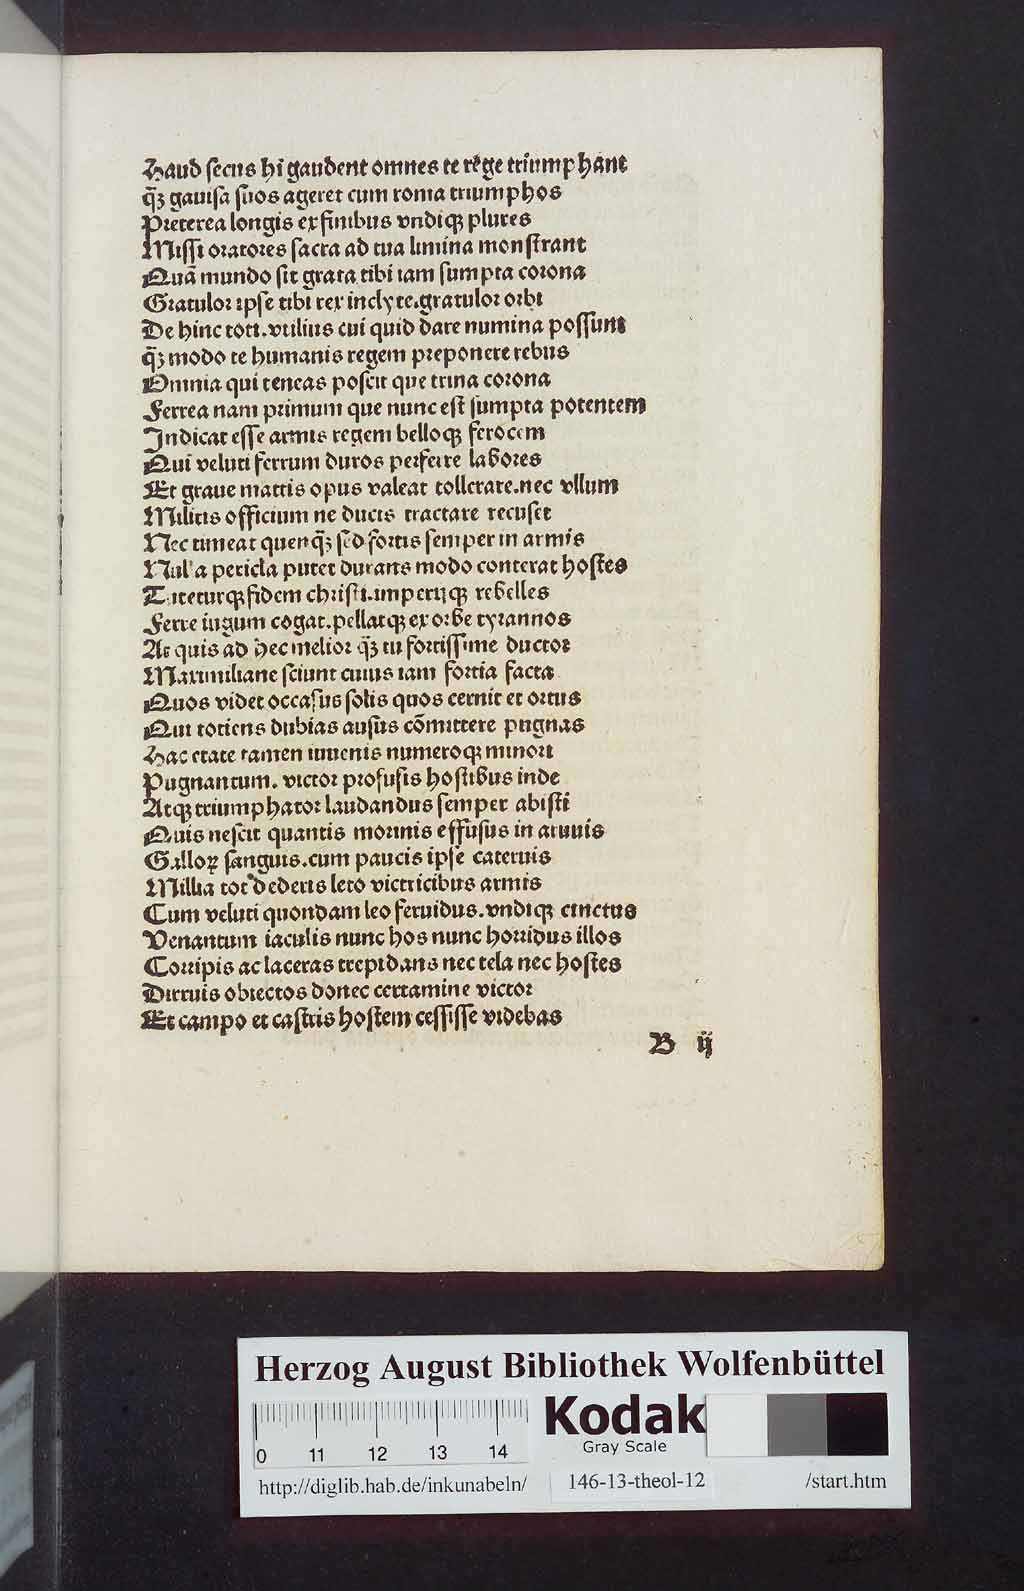 Haud secus hi gaudent omnes te rege triumphant
qꝫ̄ gauisa suos ageret cum roma triumphos
Preterea longis ex finibus vndiqꝫ plures
Missi oratores sacra ad tua limina monstrant
Quā mundo sit grata tibi iam sumpta corona
Gratulor ipse tibi rex inclyte.gratulor orbi
De hinc toti.vtilius cui quid dare numina possunt
qꝫ̄ modo te humanis regem preponere rebus
Omnia qui teneas poscit que trina corona
Ferrea nam primum que nunc est sumpta potentem
Indicat esse armis regem belloqꝫ ferocem
Qui veluti ferrum duros perferre labores
Et graue martis opus valeat tollerare.nec vllum
Militis officium ne ducis tractare recuset
Nec timeat quenqꝫ̄ sed fortis semper in armis
Nulla pericla putet durans modo conterat hostes
Tuteturqꝫ fidem christi.imperijqꝫ rebelles
Ferre iugum cogat.pellatqꝫ ex orbe tyrannos
At quis ad hec melior qꝫ̄ tu fortissime ductor
Maximiliane sciunt cuius iam fortia facta
Quos videt occasus solis quos cernit et ortus
Qui totiens dubias ausus cōmittere pugnas
Hac etate tamen iuuenis numeroqꝫ minori
Pugnantum. victor profusis hostibus inde
Atqꝫ triumphator laudandus semper abisti
Quis nescit quantis morinis effusus in aruuis
Galloꝝ sanguis.cum paucis ipse cateruis
Millia tot dederis leto victricibus armis
Cum veluti quondam leo feruidus.vndiqꝫ cinctus
Venantum iaculis nunc hos nunc horridus illos
Corripis ac laceras trepidans nec tela nec hostes
Dirruis obiectos donec certamine victor
Et campo et castris hostem cessisse videbas
B ij
Herzog August Bibliothek Wolfenbüttel
0 11 12 13 14
Kodak
Gray Scale
http://diglib.hab.de/inkunabeln/ 146-13-theol-12 /start.htm